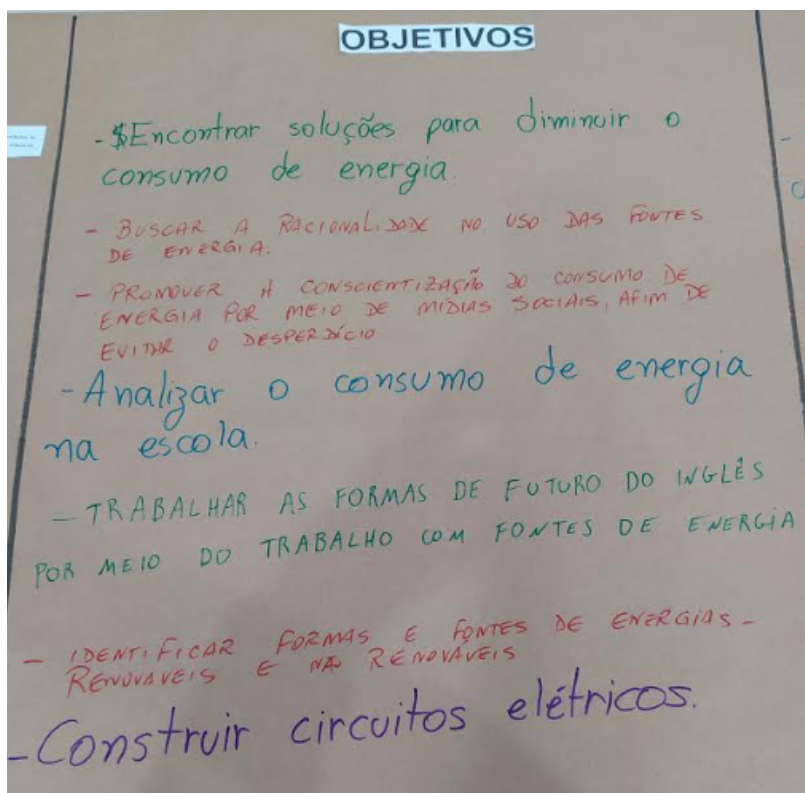 OBJETIVOS
- $Encontrar soluções para diminuir o
consumo de energia.
- BUSCAR A RACIONALIDADE NO USO DAS FONTES
DE ENERGIA.
- PROMOVER A CONSCIENTIZAÇÃO DO CONSUMO DE
ENERGIA POR MEIO DE MIDIAS SOCIAIS, AFIM DE
EVITAR O DESPERDÍCIO
- Analizar o consumo de energia
na escola.
- TRABALHAR AS FORMAS DE FUTURO DO INGLÊS
POR MEIO DO TRABALHO COM FONTES DE ENERGIA
- IDENTIFICAR FORMAS E FONTES DE ENERGIAS -
RENOVAVEIS E NÃO RENOVAVEIS
- Construir circuitos elétricos.